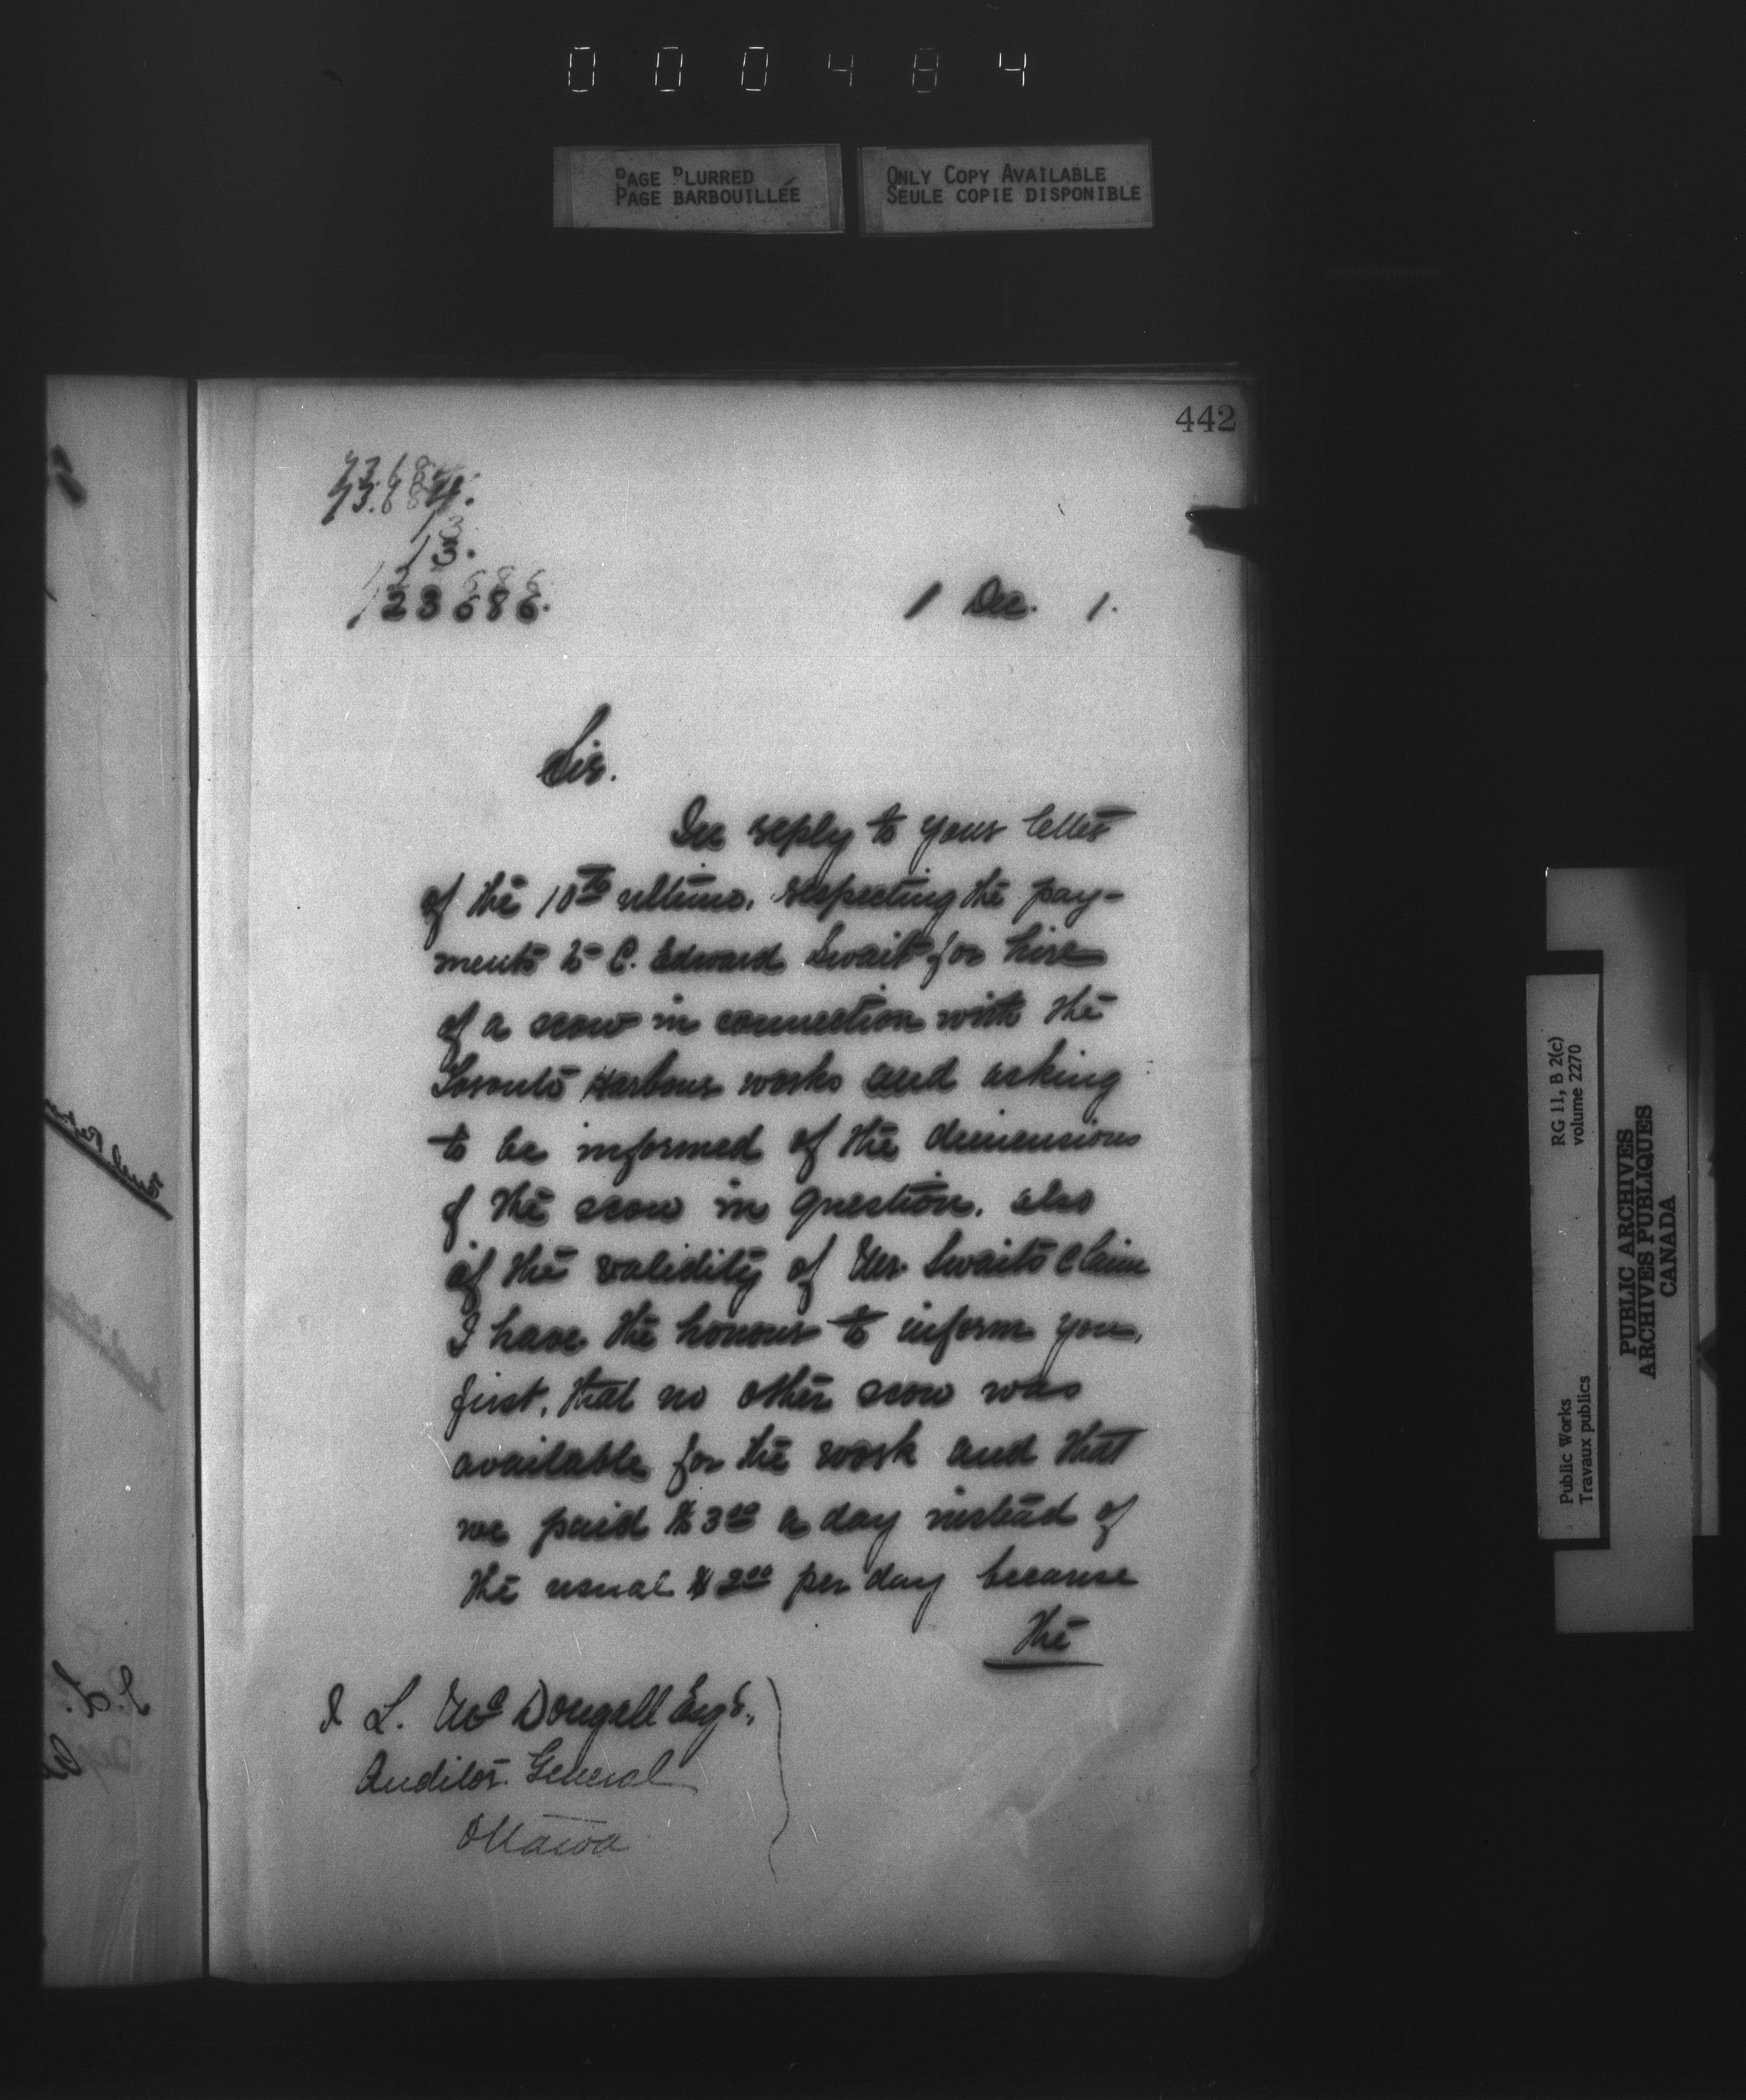 000484
PAGE BLURRED
PAGE BARBOUILLÉE
ONLY COPY AVAILABLE
SEULE COPIE DISPONIBLE
442
13.
123686.
1 Dec. 1.
Sir.
In reply to your letter
of the 10th ultimo, respecting the pay-
ments to C. Edward Swait for hire
of a scow in connection with the
Toronto Harbour works and asking
to be informed of the dimensions
of the scow in question, also
of the validity of Mr. Swaits claim
I have the honour to inform you,
first, that no other scow was
available for the work and that
we paid $3.00 a day instead of
the usual $2.00 per day because
the
J L. McDougall Esqr.,
Auditor General
Ottawa
Public Works
Travaux publics
RG 11, B 2(c)
volume 2270
PUBLIC ARCHIVES
ARCHIVES PUBLIQUES
CANADA